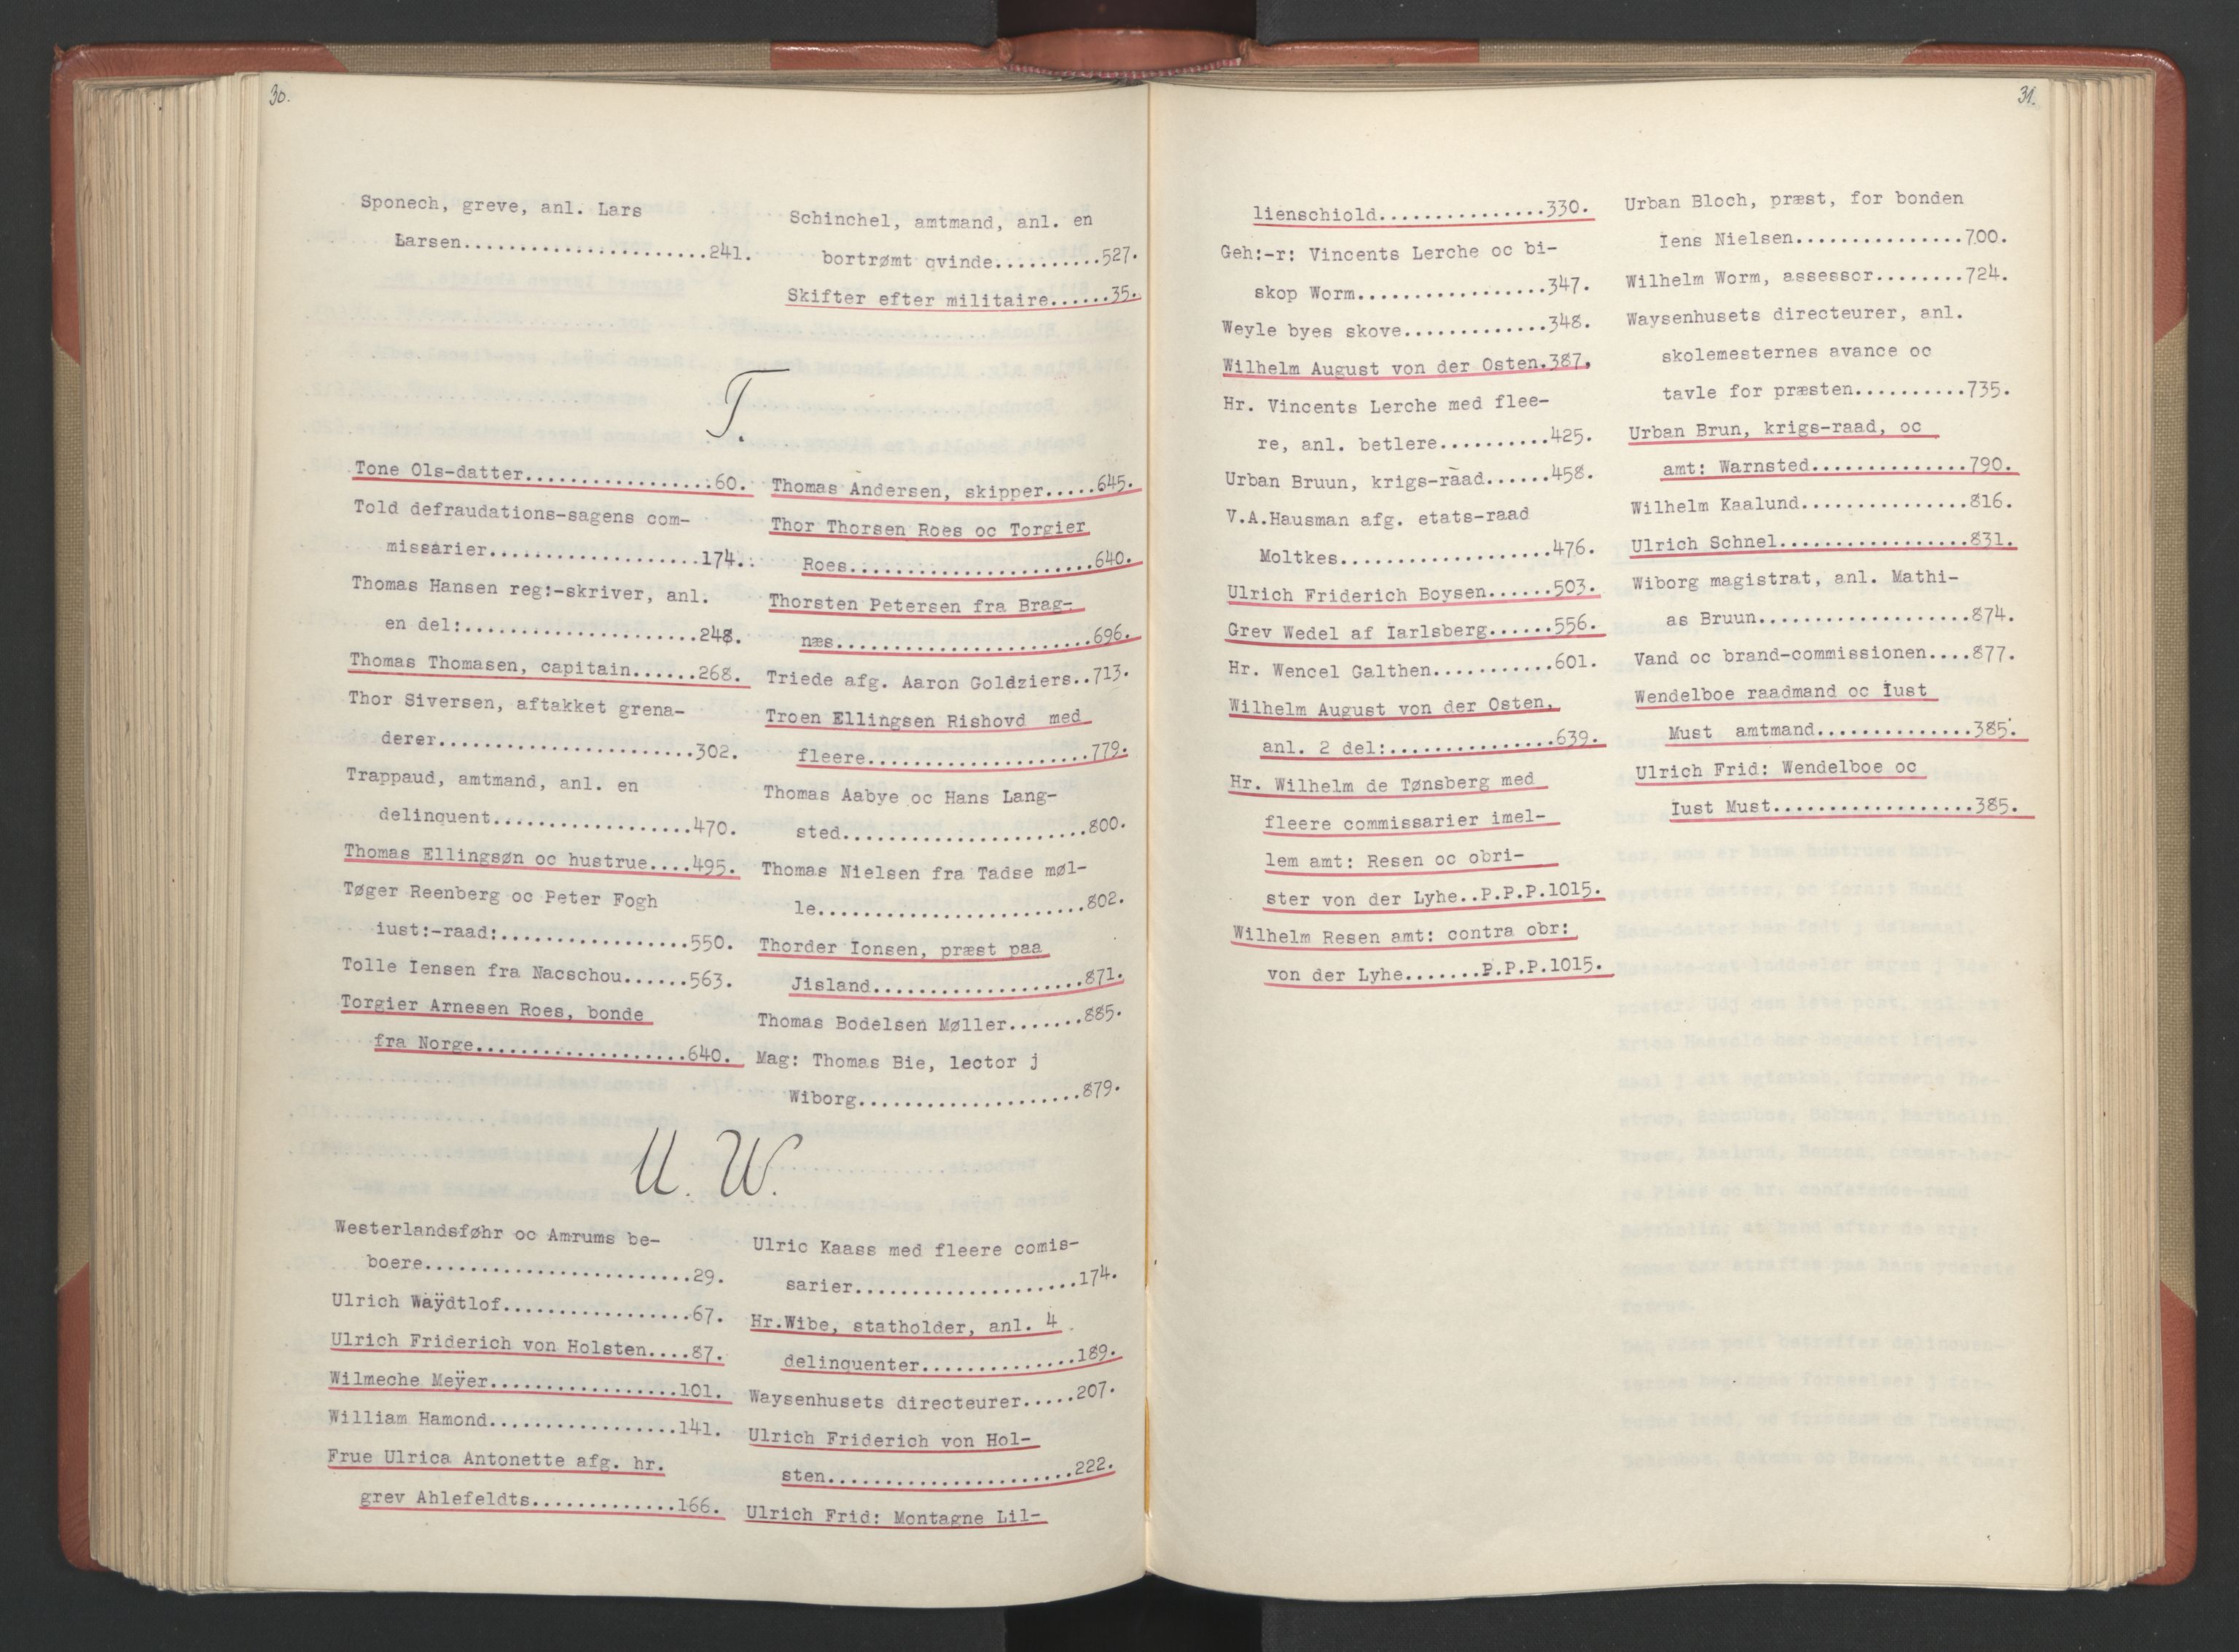 30.
Sponech, greve, anl. Lars
Larsen......................241.
Schinchel, amtmand, anl. en
bortrømt qvinde..........527.
Skifter efter militaire......35.
T.
Tone Ols-datter.................60.
Told defraudations-sagens com-
missarier...................174.
Thomas Hansen reg:-skriver, anl.
en del:.....................248.
Thomas Thomasen, capitain......268.
Thor Siversen, aftakket grena-
derer.......................302.
Trappaud, amtmand, anl. en
delinquent..................470.
Thomas Ellingsøn oc hustrue....495.
Tøger Reenberg oc Peter Fogh
iust:-raad:.................550.
Tolle Iensen fra Nacschou......563.
Torgier Arnesen Roes, bonde
fra Norge...................640.
Thomas Andersen, skipper.....645.
Thor Thorsen Roes oc Torgier
Roes......................640.
Thorsten Petersen fra Brag-
næs.......................696.
Triede afg. Aaron Goldziers..713.
Troen Ellingsen Rishovd med
fleere....................779.
Thomas Aabye oc Hans Lang-
sted......................800.
Thomas Nielsen fra Tadse møl-
le........................802.
Thorder Ionsen, præst paa
Jisland...................871.
Thomas Bodelsen Møller.......885.
Mag: Thomas Bie, lector j
Wiborg....................879.
U. W.
Westerlandsføhr oc Amrums be-
boere........................29.
Ulrich Waÿdtlof.................67.
Ulrich Friderich von Holsten....87.
Wilmeche Meÿer.................101.
William Hamond.................141.
Frue Ulrica Antonette afg. hr.
grev Ahlefeldts.............166.
Ulric Kaass med fleere comis-
sarier....................174.
Hr.Wibe, statholder, anl. 4
delinquenter..............189.
Waysenhusets directeurer.....207.
Ulrich Friderich von Hol-
sten......................222.
Ulrich Frid: Montagne Lil-
31.
lienschiold...............330.
Geh:-r: Vincents Lerche oc bi-
skop Worm.................347.
Weyle byes skove.............348.
Wilhelm August von der Osten.387.
Hr. Vincents Lerche med flee-
re, anl. betlere..........425.
Urban Bruun, krigs-raad......458.
V.A.Hausman afg. etats-raad
Moltkes...................476.
Ulrich Friderich Boysen......503.
Grev Wedel af Iarlsberg......556.
Hr. Wencel Galthen...........601.
Wilhelm August von der Osten,
anl. 2 del:...............639.
Hr. Wilhelm de Tønsberg med
fleere commissarier imel-
lem amt: Resen oc obri-
ster von der Lyhe..P.P.P.1015.
Wilhelm Resen amt: contra obr:
von der Lyhe.......P.P.P.1015.
Urban Bloch, præst, for bonden
Iens Nielsen...............700.
Wilhelm Worm, assessor........724.
Waysenhusets directeurer, anl.
skolemesternes avance oc
tavle for præsten..........735.
Urban Brun, krigs-raad, oc
amt: Warnsted..............790.
Wilhelm Kaalund...............816.
Ulrich Schnel.................831.
Wiborg magistrat, anl. Mathi-
as Bruun...................874.
Vand oc brand-commissionen....877.
Wendelboe raadmand oc Iust
Must amtmand..............385.
Ulrich Frid: Wendelboe oc
Iust Must..................385.